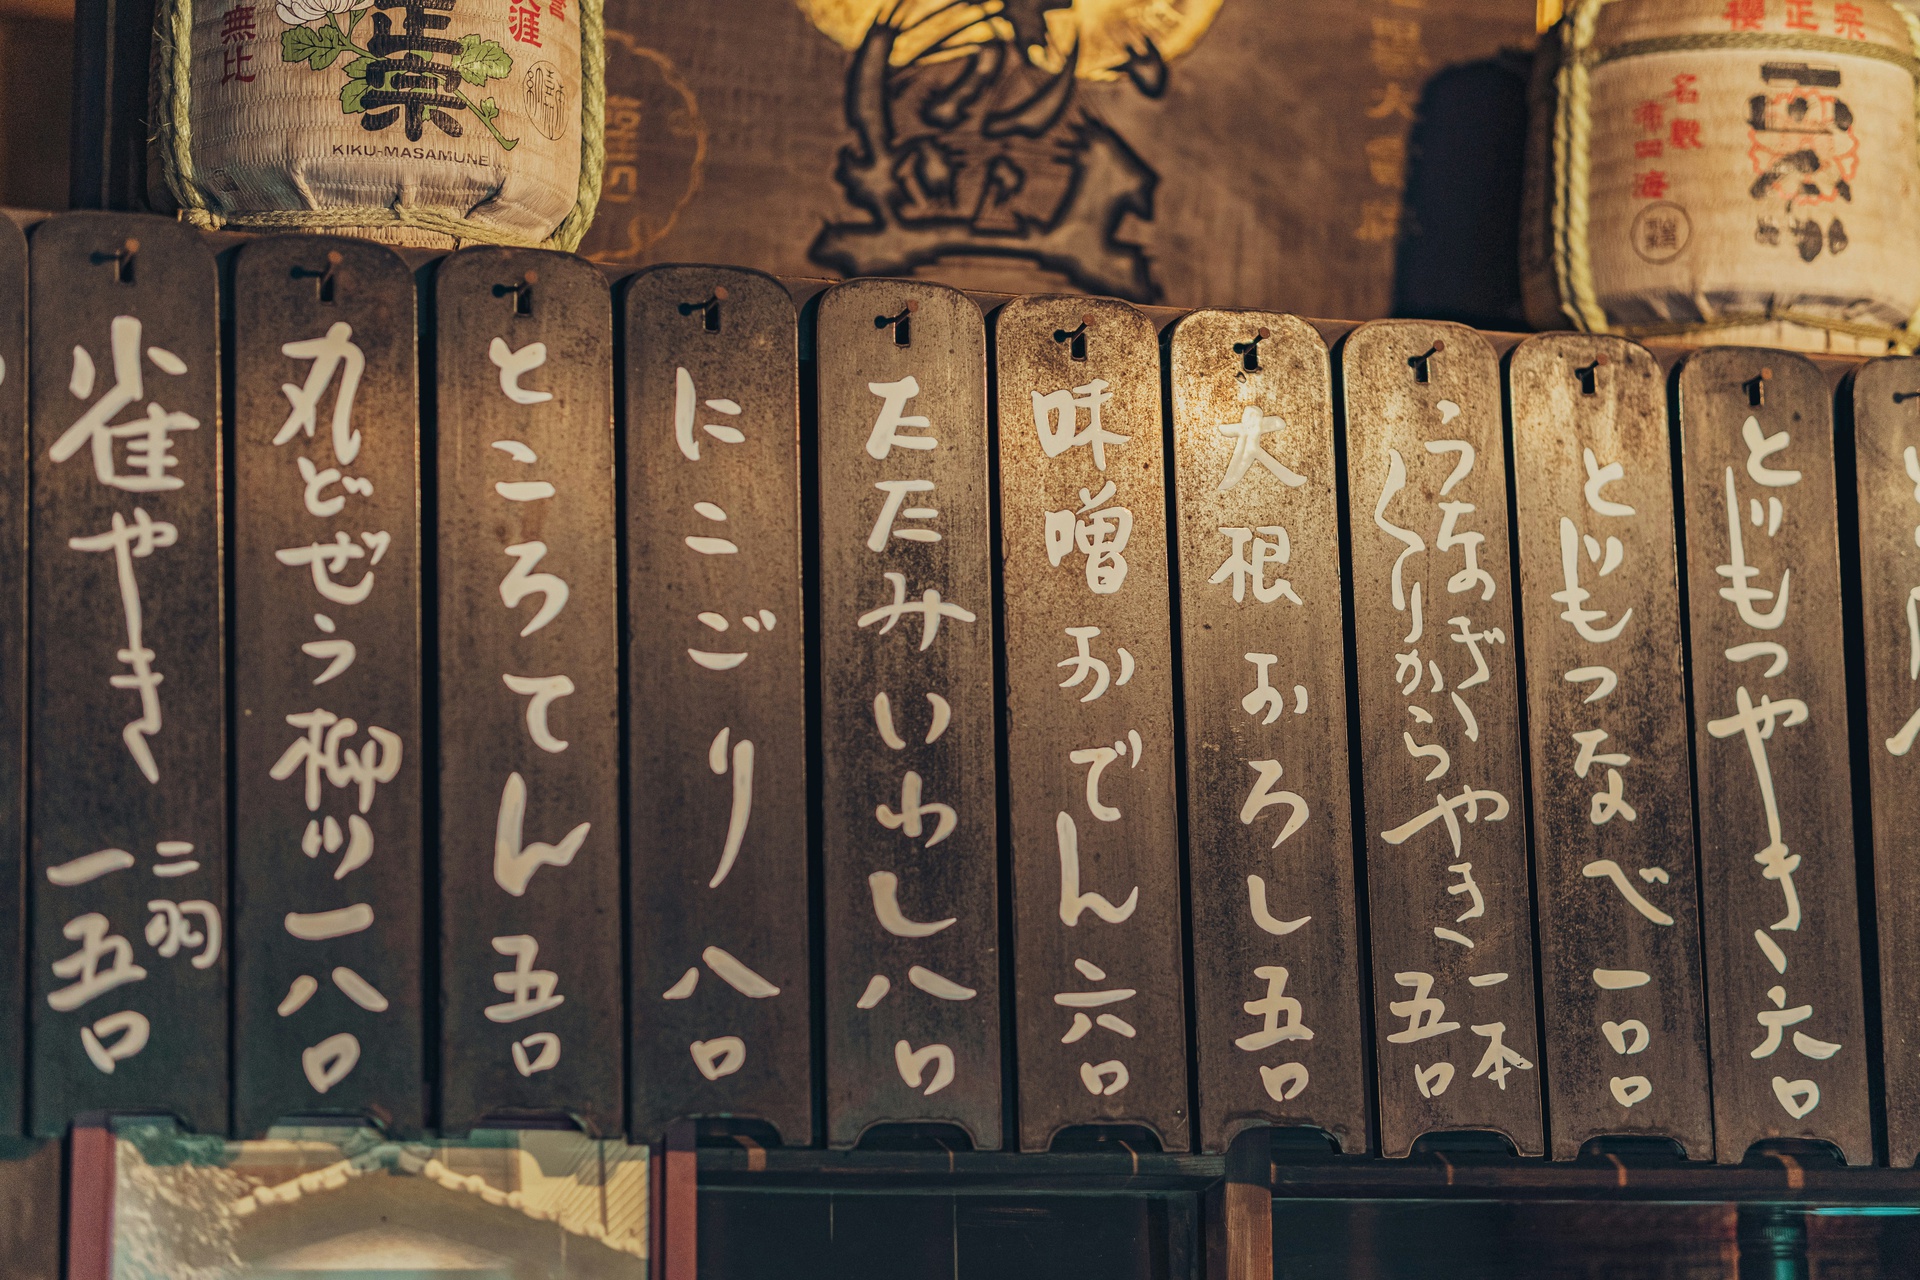 正宗
無比
KIKU-MASAMUNE
櫻正宗
とりもつやき、六〇
とりもつなべ 一〇〇
うなぎ、
くりからやき、
一本
五〇
大根おろし 五〇
味噌おでん 六〇
たたみいわし 八〇
にこごり 八〇
ところてん 五〇
丸どぜう柳川 一八〇
雀やき
二羽
一五〇